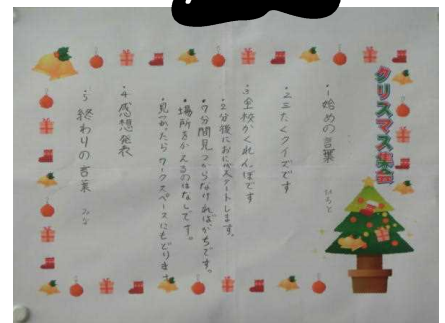 クリスマス集会
・1 始めの言葉 ひろと
・2 三たくクイズです
・3 全校かくれんぼです
2分後におにがスタートします。
・7分間見つからなければかちです。
・場所をかえるのはなしです。
・見つかったらワークスペースにもどります
・4 感想発表
・5 終わりの言葉